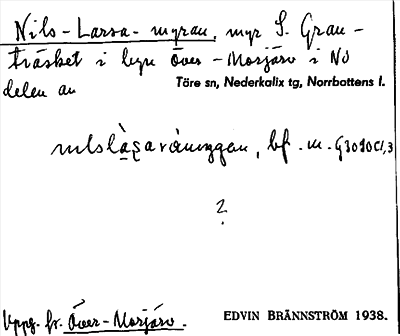 Nils-Larsa-myran, myr S. Gran-
träsket i byn Över-Morjärv i NÖ
delen av Töre sn, Nederkalix tg, Norrbottens l.
bf. m.
?
Uppg. fr. Över-Morjärv.
EDVIN BRÄNNSTRÖM 1938.